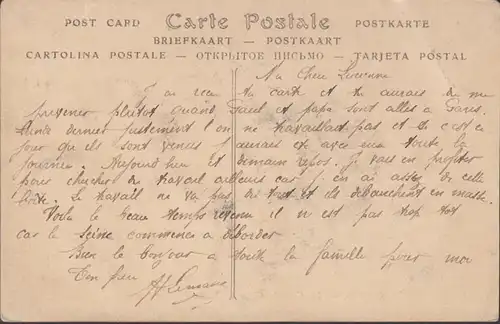 POST CARD Carte Postale POSTKARTE
BRIEFKAART — POSTKAART
CARTOLINA POSTALE — ОТКРЫТОЕ ПИСЬМО — TARJETA POSTAL
Ma Chere Lucienne
J'ai recu ta carte et tu aurais du me
prevenir plutot quand Paul et papa sont allés a Paris.
Lundi dernier justement l'on ne travaillait pas et c'est ce
jour qu'ils sont venus j'aurais été avec eux toute la
journée. Aujourd'hui et demain repos. Je vais en profiter
pour chercher du travail ailleurs car j'en ai assez de cette
boite. Le travail ne va pas du tout et ils débauchent en masse.
Voila le beau temps revenu il n'est pas trop tot
car la Seine commence a déborder.
Bien le bonjour a toute la famille pour moi
Ton frere